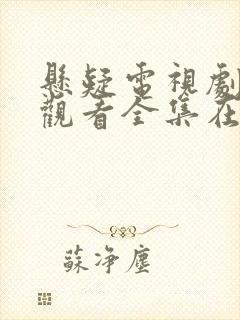 懸疑電視劇
觀看全集在
蘇淨塵